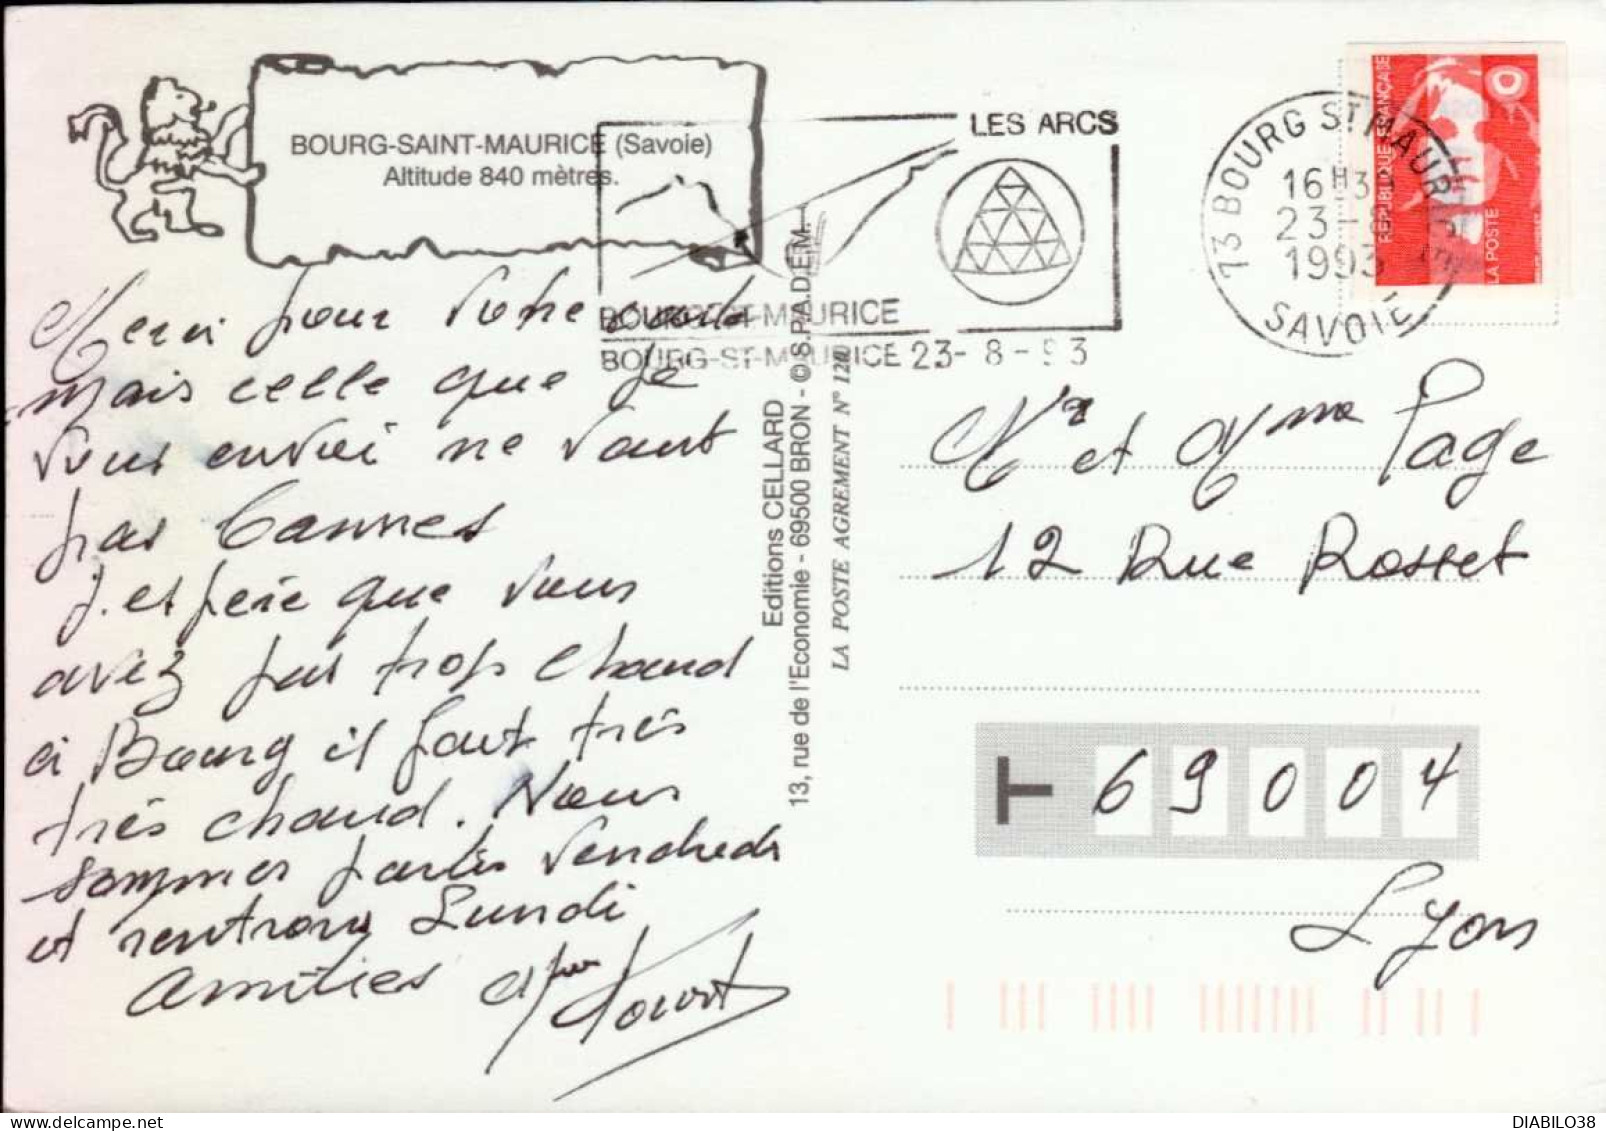 BOURG-SAINT-MAURICE (Savoie)
Altitude 840 mètres.
LES ARCS
BOURG-ST-MAURICE
BOURG-ST-MAURICE 23-8-93
13 BOURG ST MAURICE
16H3
23-8
1993
SAVOIE
REPUBLIQUE FRANÇAISE
LA POSTE
Merci pour votre carte
mais celle que je
vous envoi ne vaut
pas Cannes
j.espère que vous
avez pas trop chaud
à Bourg il fait très
très chaud. Nous
sommes partis Vendredi
et rentrons Lundi
Amitiés
Editions CELLARD
13, rue de l'Economie - 69500 BRON - © S.P.A.D.E.M.
LA POSTE AGREMENT N° 120
Mr et Mme Page
12 Rue Rosset
T 69004
Lyon
DIABILO38